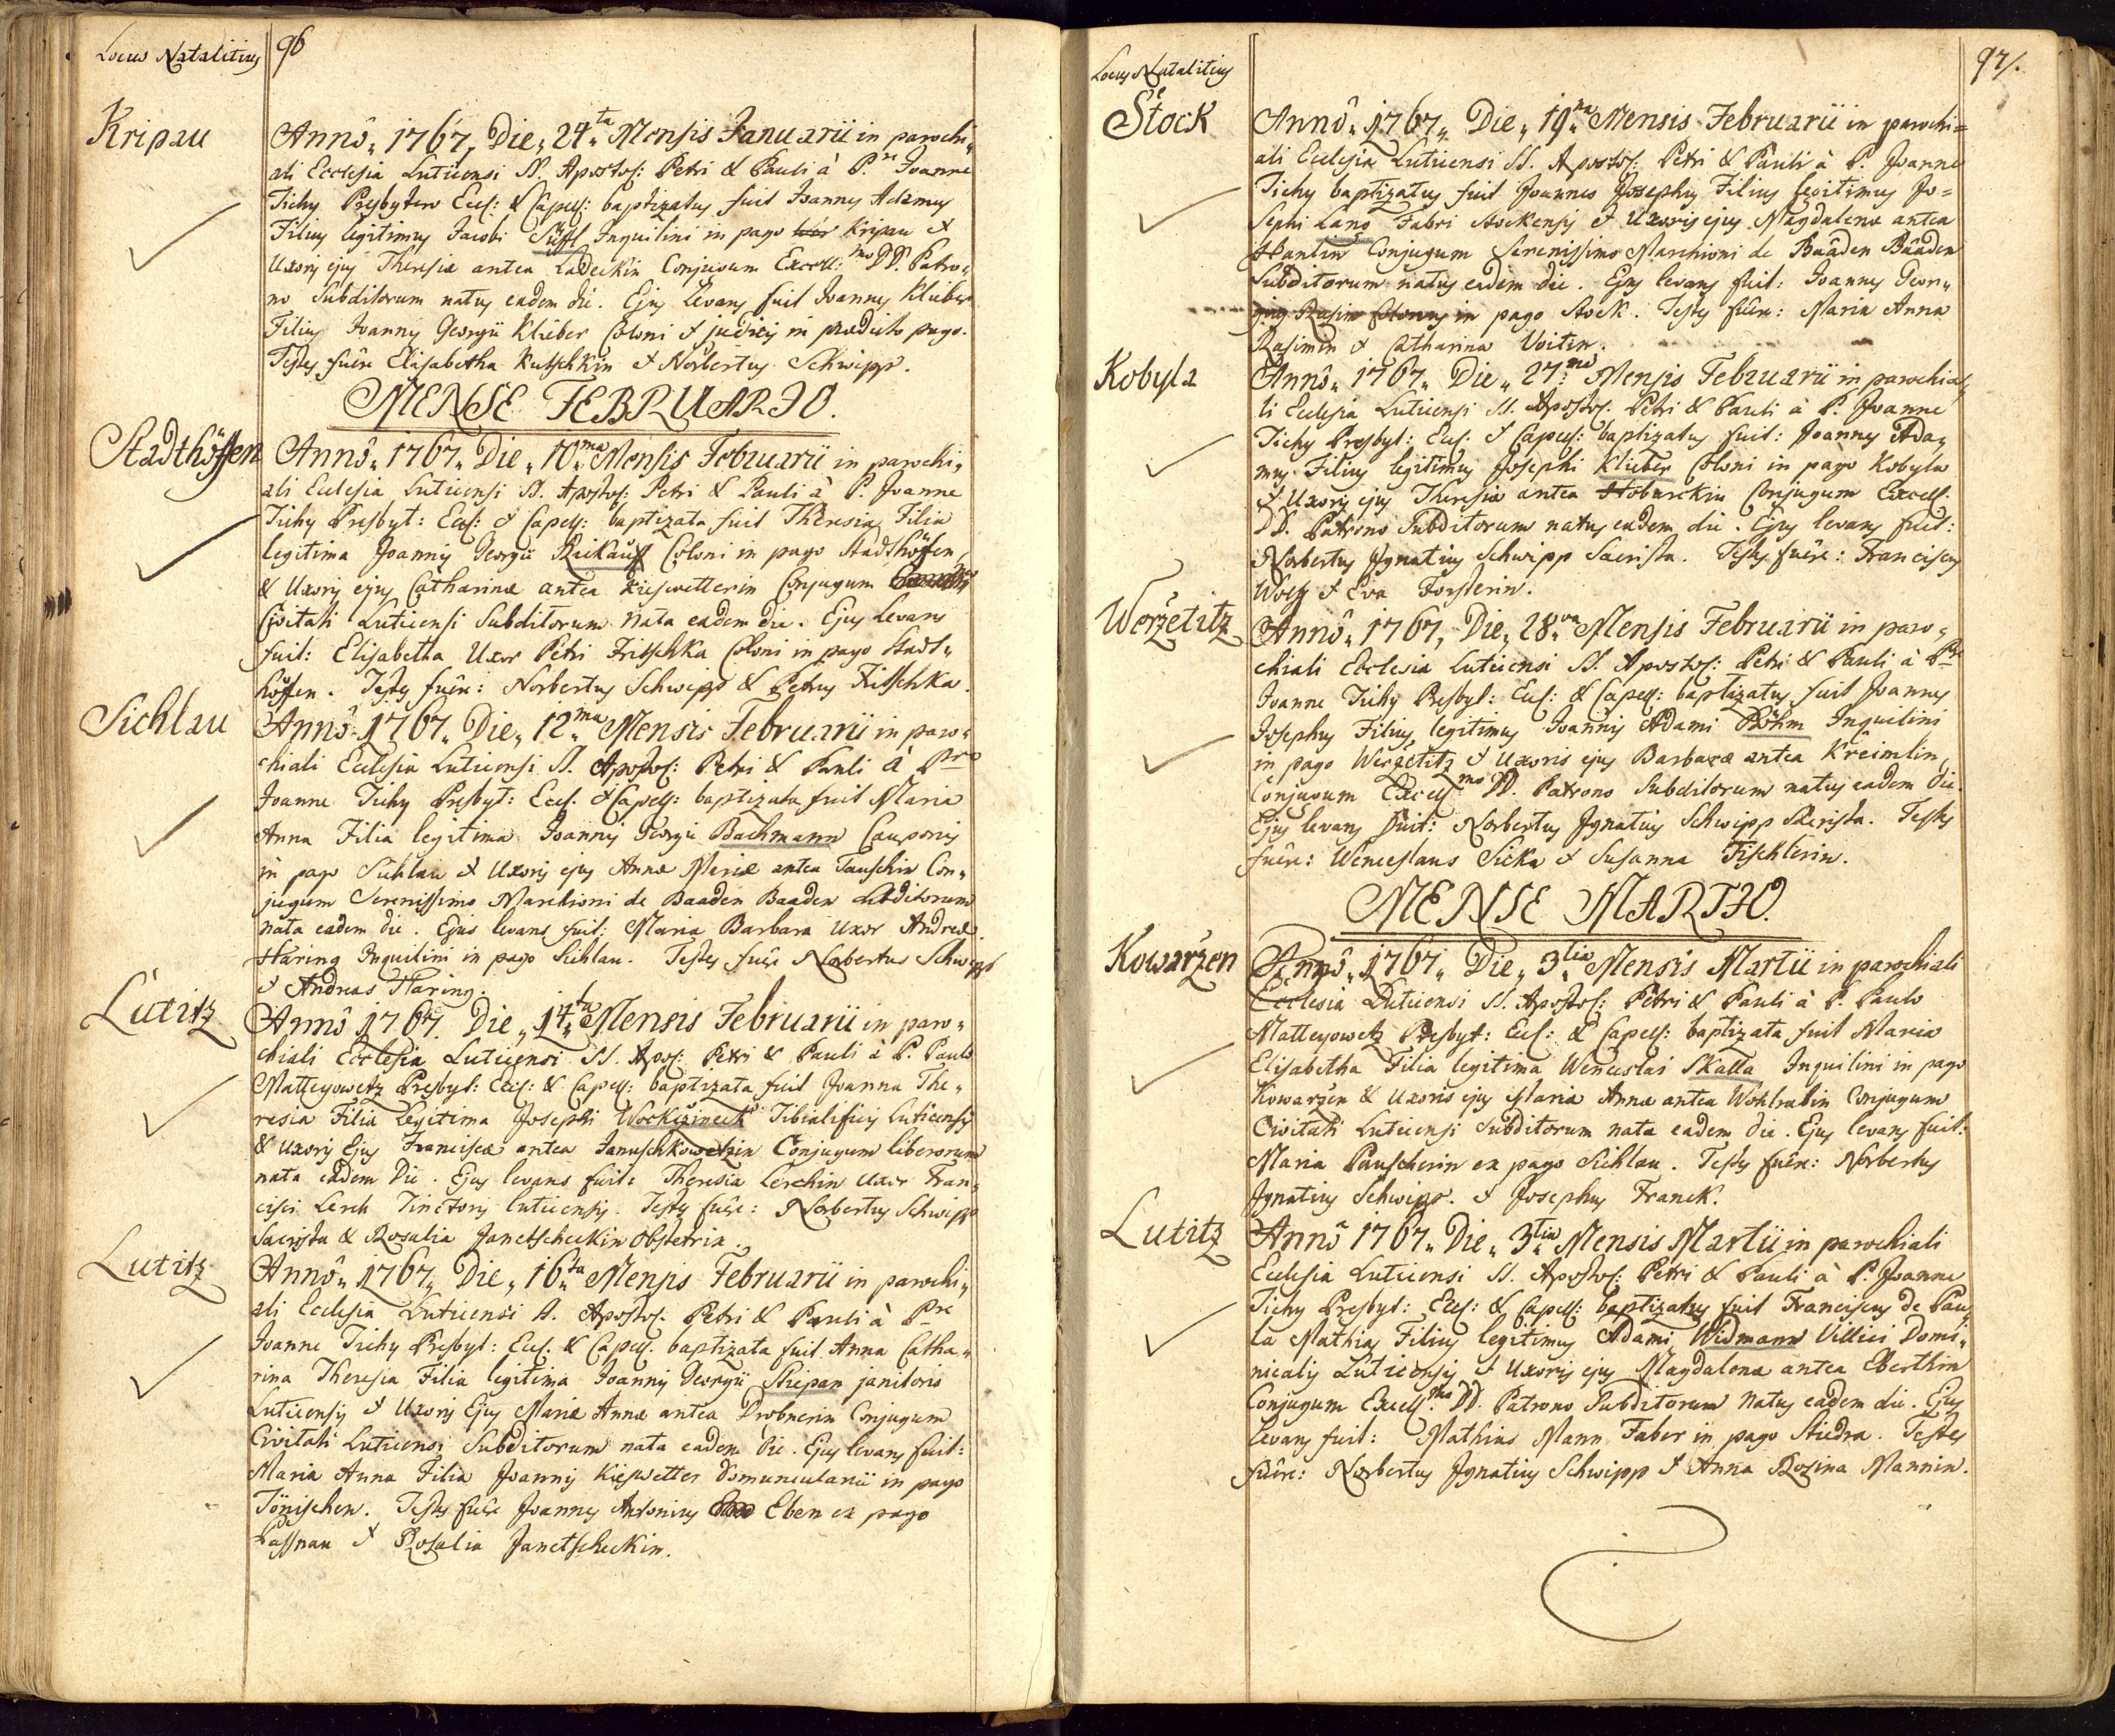 Locus Natalitius 96
Kripau
Annô„ 1767„ Die„ 24„ta Mensis Januarii in parochi„
ali Ecclesia Luticensi SS. Apostol: Petri & Pauli à P. Joanne
Tichy Presbytero Eccl: & Capell: baptizatus fuit Joannes Adamus
Filius legitimus Jacobi Inquilini in pago Kripau &
Uxoris ejus Theresiæ antea Ladeckin Conjugum Excell:mo DD. Patro„
no Subditorum natus eadem die. Ejus Levans fuit Joannes Klieber
Filius Joannis Georgii Klieber Coloni & judicis in prædicto pago.
Testes fuêre Elisabetha Kutschkin & Norbertus Schwipp.
MENSE FEBRUARIO.
Stadthöffen
Annô„ 1767„ Die„ 10„ma Mensis Februarii in parochi„
ali Ecclesia Luticensi SS. Apostol: Petri & Pauli à P. Joanne
Tichy Presbyt: Eccl: & Capell: baptizata fuit Theresia Filia
legitima Joannis Georgii Raikauff Coloni in pago Stadthöffen,
& Uxoris ejus Catharinæ antea Kieswetterin Conjugum
Civitati Luticensi Subditorum nata eadem die. Ejus Levans
fuit: Elisabetha Uxor Petri Fritschka Coloni in pago Stadt„
höffen. Testes fuêre: Norbertus Schwipp & Petrus Fritschka.
Sichlau
Annô„ 1767„ Die„ 12„ma Mensis Februarii in paro„
chiali Ecclesia Luticensi SS. Apostol: Petri & Pauli à Pre
Joanne Tichy Presbyt: Eccl: & Capell: baptizata fuit Maria
Anna Filia legitima Joannis Georgii Bachmann Cauponis
in pago Sichlau & Uxoris ejus Annæ Mariæ antea Tauschin Con„
jugum Serenissimo Marchioni de Baaden Baaden Subditorum
nata eadem die. Ejus levans fuit: Maria Barbara Uxor Andreæ
Häring Inquilini in pago Sichlau. Testes fuêre Norbertus Schwipp
& Andreas Häring.
Lutitz
Annô 1767. Die„ 14„ta Mensis Februarii in paro„
chiali Ecclesia Luticensi SS. Apos: Petri & Pauli à P. Paulo
Matteyowetz Presbyt: Eccl: & Capell: baptizata fuit Joanna The„
resia Filia Legitima Josephi Workuzineck Tibialificis Luticensis
& Uxoris Ejus Franciscæ antea Januschkowetzin Conjugum liberorum
nata eadem Die. Ejus levans fuit: Theresia Lerchin Uxor Fran„
cisci Lerch Tinctoris luticensis. Testes fuêre: Norbertus Schwipp
Sacrista & Rosalia Janetscheckin Obstetrix.
Lutitz
Annô„ 1767„ Die„ 16„ta Mensis Februarii in parochi„
ali Ecclesia Luticensi SS. Apostol. Petri & Pauli à Pre
Joanne Tichy Presbyt: Eccl. & Capell. baptizata fuit Anna Catha„
rina Theresia Filia legitima Joannis Georgii Stiepan janitoris
Luticensis & Uxoris Ejus Mariæ Annæ antea Drobnerin Conjugum
Civitati Luticensi Subditorum nata eadem Die. Ejus levans fuit:
Maria Anna Filia Joannis Kieswetter domuncularii in pago
Tönischen. Testes fuêre Joannes Antonius Eben ex pago
Passnau & Rosalia Janetscheckin.
Locus Natalitius 97/.
Stock
Annô„ 1767„ Die„ 19„na Mensis Februarii in parochi=
ali Ecclesia Luticensi SS. Apostol: Petri & Pauli à P. Joanne
Tichy baptizatus fuit Joannes Josephus Filius legitimus Jo=
sephi Lang Fabri Stockensis & Uxoris ejus Magdalenæ antea
Hantin Conjugum Serenissimo Marchioni de Baaden Baaden
Subditorum natus eadem die. Ejus levans fuit: Joannes Geor„
gius Rasim Colonus in pago Stock. Testes fuêre: Maria Anna
Rasimin & Catharina Voitin.
Kobyla
Annô„ 1767„ Die„ 27„ma Mensis Februarii in parochia„
li Ecclesia Luticensi SS. Apostol. Petri & Pauli à P. Joanne
Tichy Presbyt: Eccl: & Capell: baptizatus fuit: Joannes Ada„
mus Filius legitimus Josephi Klieber Coloni in pago Kobyla
& Uxoris ejus Theresiæ antea Hoburckin Conjugum Excell.
DD. Patrono Subditorum natus eadem die. Ejus levans fuit:
Norbertus Ignatius Schwipp Sacrista. Testes fuêre: Franciscus
Wolff & Eva Forsterin.
Weržetitz
Annô„ 1767„ Die„ 28„va Mensis Februarii in paro„
chiali Ecclesia Luticensi SS. Apostol: Petri & Pauli à Pre
Joanne Tichy Presbyt: Eccl: & Capell: baptizatus fuit Joannes
Josephus Filius legitimus Joannis Adami Böhm Inquilini
in pago Weržetitz & Uxoris ejus Barbaræ antea Kreimlin
Conjugum Excell:mo DD. Patrono Subditorum natus eadem die.
Ejus levans fuit: Norbertus Ignatius Schwipp Sacrista. Testes
fuêre: Wenceslaus Sicka & Susanna Tischlerin.
MENSE MARTIO.
Kowaržen
Annô„ 1767„ Die„ 3„tia Mensis Martii in parochiali
Ecclesia Luticensi SS. Apostol: Petri & Pauli à P. Paulo
Matteyowetz Presbyt: Eccl: & Capell: baptizata fuit Maria
Elisabetha Filia legitima Wenceslai Skalla Inquilini in pago
Kowaržen & Uxoris ejus Mariæ Annæ antea Wohlrabin Conjugum
Civitati Luticensi Subditorum nata eadem die. Ejus levans fuit:
Maria Pauscherin ex pago Sichlau. Testes fuêre: Norbertus
Ignatius Schwipp. & Josephus Franck.
Lutitz
Annô 1767„ Die„ 3„tia Mensis Martii in parochiali
Ecclesia Luticensi SS. Apostol: Petri & Pauli à P. Joanne
Tichy Presbyt: Eccl: & Capell: baptizatus fuit Franciscus de Pau„
la Mathias Filius legitimus Adami Widmann Villici Domi„
nicalis Luticensis & Uxoris ejus Magdalenæ antea Eberthin
Conjugum Excell:mo DD. Patrono Subditorum Natus eadem die. Ejus
levans fuit: Mathias Mann Faber in pago Stiedra. Testes
fuêre: Norbertus Ignatius Schwipp & Anna Rosina Mannin.